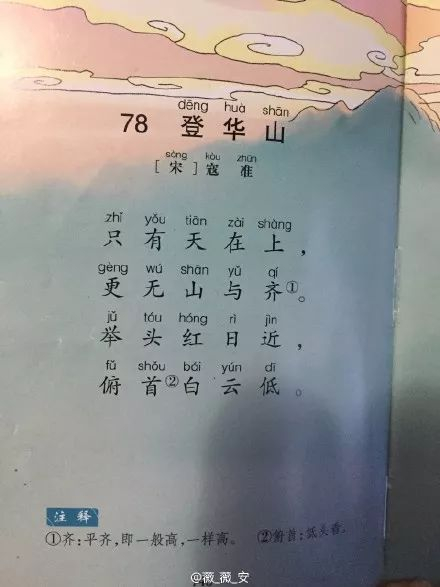 dēng huà shān
78 登华山
sòng kòu zhǔn
[宋]寇准
zhǐ yǒu tiān zài shàng
只有天在上，
gèng wú shān yǔ qí
更无山与齐①。
jǔ tóu hóng rì jìn
举头红日近，
fǔ shǒu bái yún dī
俯首②白云低。
注释
①齐:平齐,即一般高,一样高。 ②俯首:低头看。
@薇_薇_安